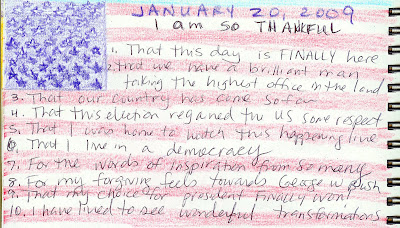 JANUARY 20, 2009
I am so THANKFUL
1. That this day is FINALLY here
2. that we have a brilliant man
taking the highest office in the land
3. That our country has come so far
4. That this election regained the US some respect
5. That I was home to watch this happening live
6. That I live in a democracy
7. For the words of inspiration from so many
8. For my forgiving feels towards George W Bush
9. That my choice for president Finally won!
10. I have lived to see wonderful transformations